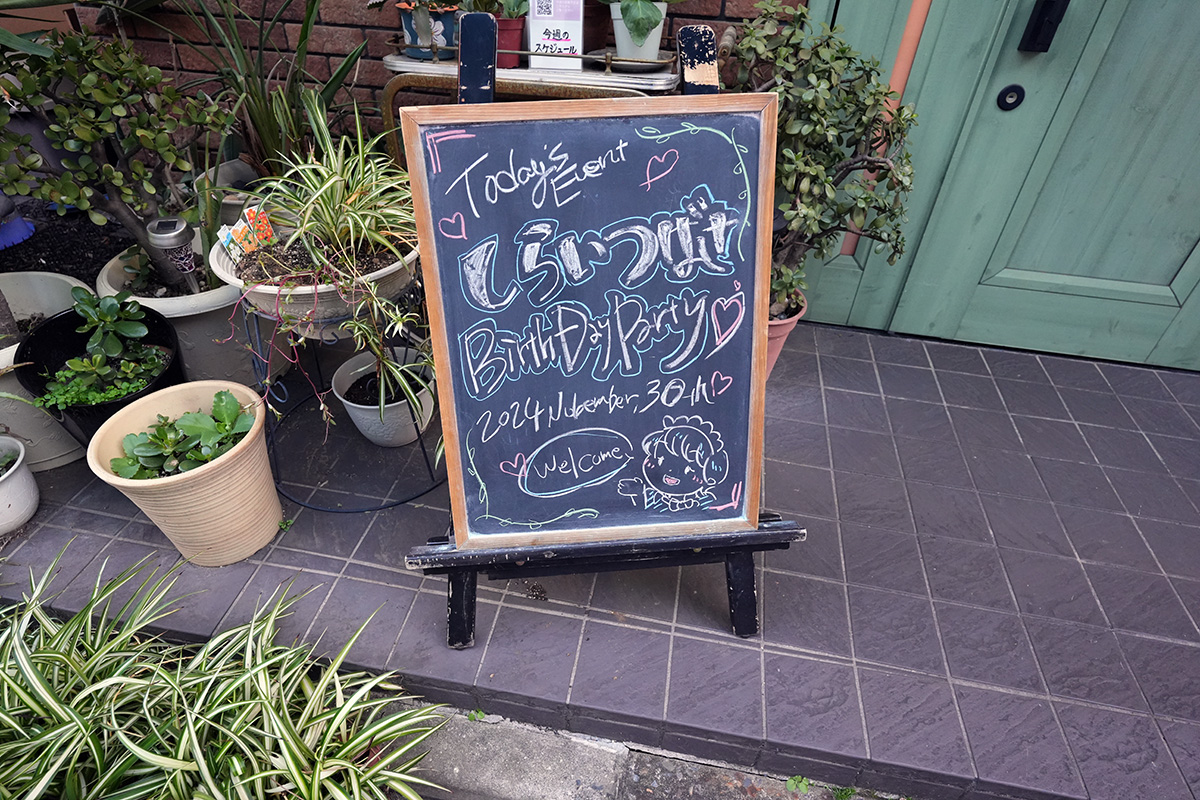 今週の
スケジュール
Today's
Event
しらいつばさ
BirthDayParty
2024 November, 30th
Welcome